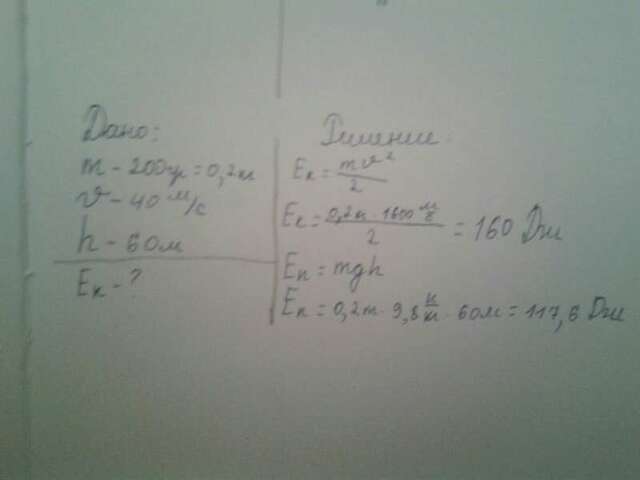 Дано:
m - 200гр = 0,2кг
𝜗 - 40 м/с
h - 60м
Eк - ?
Решение:
Eк = m𝜗²/2
Eк = 0,2кг · 1600 м/с / 2 = 160 Дж
Eп = mgh
Eп = 0,2кг · 9,8 н/кг · 60м = 117,6 Дж